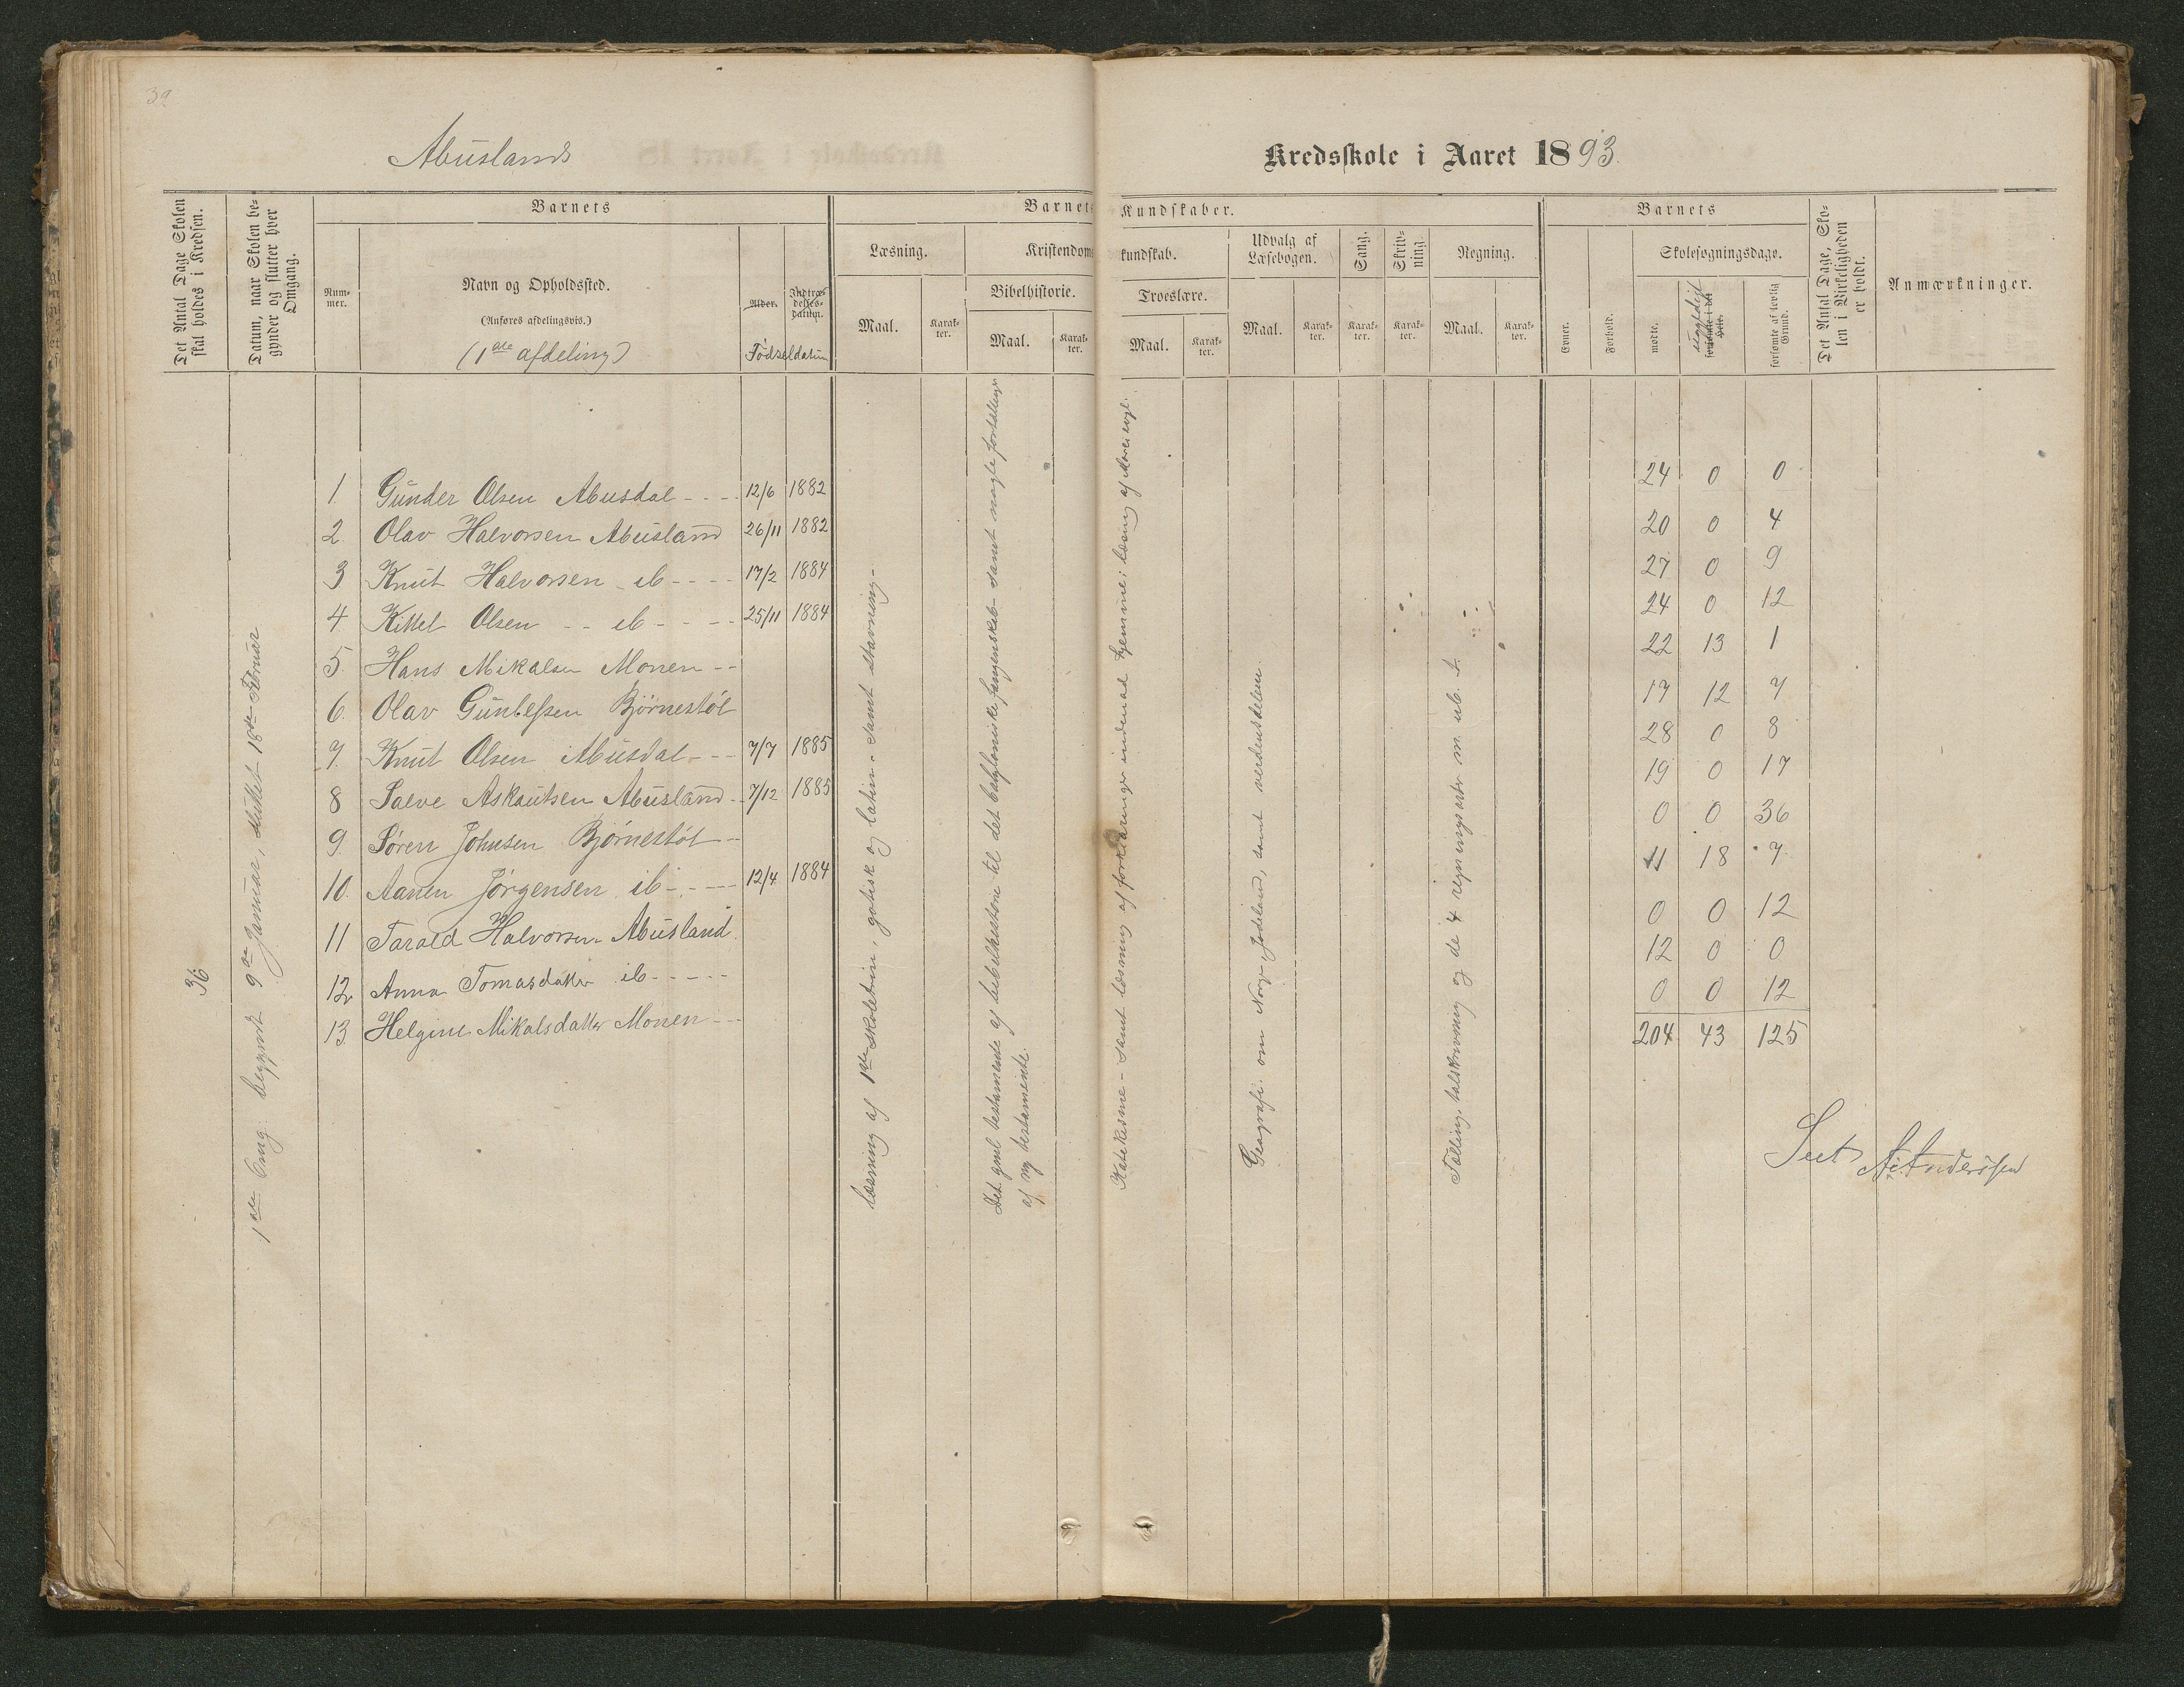 39
Abuslands
Kredsskole i Aaret 1893.
Det Antal Dage Skolen skal holdes i Kredsen.
Datum, naar Skolen begynder og slutter hver Omgang.
Barnets
Nummer.
Navn og Opholdssted.
(Anføres afdelingsvis.)
(1ste afdeling)
Alder.
Indtrædelsesdatum.
Fødseldatum
Barnets Kundskaber.
Læsning.
Maal.
Karakter.
Kristendomskundskab.
Bibelhistorie.
Maal.
Karakter.
Troeslære.
Maal.
Karakter.
Udvalg af Læsebogen.
Maal.
Karakter.
Sang.
Karakter.
Skrivning
Karakter.
Regning.
Maal.
Karakter.
Barnets
Evner.
Forhold.
Skolesøgningsdage.
mødte.
forsømte i det Hele.
forsømte af lovlig Grund.
Det Antal Dage, Skolen i Virkeligheden er holdt.
Anmærkninger.
36
1ste Omg. begyndt 9de Januar, sluttet 18de Februar
1 Gunder Olsen Abusdal - - - 12/6 1882 24 0 0
2. Olav Halvorsen Abusland 26/11 1882 20 0 4
3 Knut Halvorsen ib - - - - 17/2 1884 27 0 9
4 Kittel Olsen - - ib - - - - 25/11 1884 24 0 12
5. Hans Mikalsen Monen - - 22 13 1
6. Olav Guntefsen Bjørnestøl 17 12 7
7. Knut Olsen Abusdal - - - 7/7 1885 28 0 8
8 Salve Askautsen Abusland - 7/12 1885 19 0 17
9. Søren Johnsen Bjørnestøl - - 0 0 36
10. Aanen Jørgensen ib - - - - 12/4 1884 11 18 7
11 Tarald Halvorsen Abusland 0 0 12
12 Anna Tomasdatter ib - - - - - 12 0 0
13 Helgine Mikalsdatter Monen - - - 0 0 12
204 43 125
læsning af 1ste skoletrin, gotisk og latin - samt stavning -
Det gml testamente af bibelhistorie til det babyloniske fangenskab - samt nogle fortællinger
af ny testamente.
Katekisme - samt læsning af forklaringer indenad hjemme; læsning af
Geografi om Norge, Jødeland, samt verdensdelene
Tælling, talskrivning og de 4 regningsarter m. ub. t.
A. Anderssen